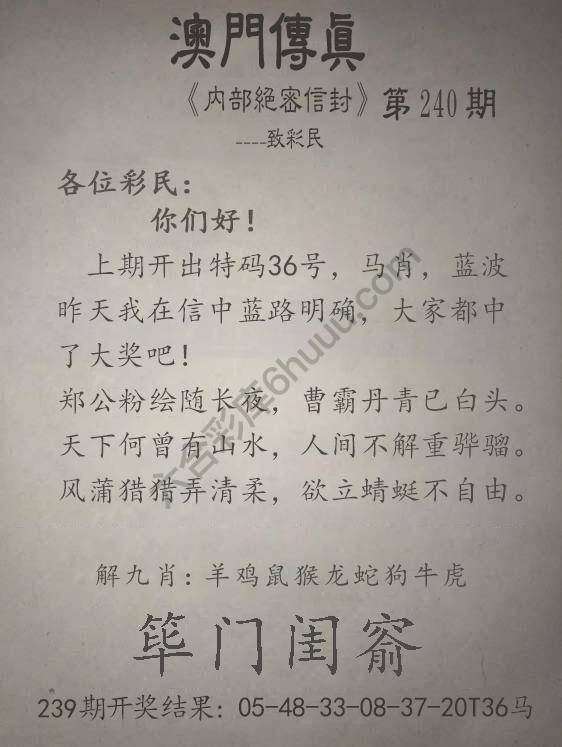 澳門傳真
《内部絕密信封》第240期
----致彩民
各位彩民:
你们好!
上期开出特码36号, 马肖, 蓝波
昨天我在信中蓝路明确, 大家都中
了大奖吧!
郑公粉绘随长夜, 曹霸丹青已白头。
天下何曾有山水, 人间不解重骅骝。
风蒲猎猎弄清柔, 欲立蜻蜓不自由。
解九肖: 羊鸡鼠猴龙蛇狗牛虎
筚门闺窬
239期开奖结果: 05-48-33-08-37-20T36马
六合彩库6huuu.com